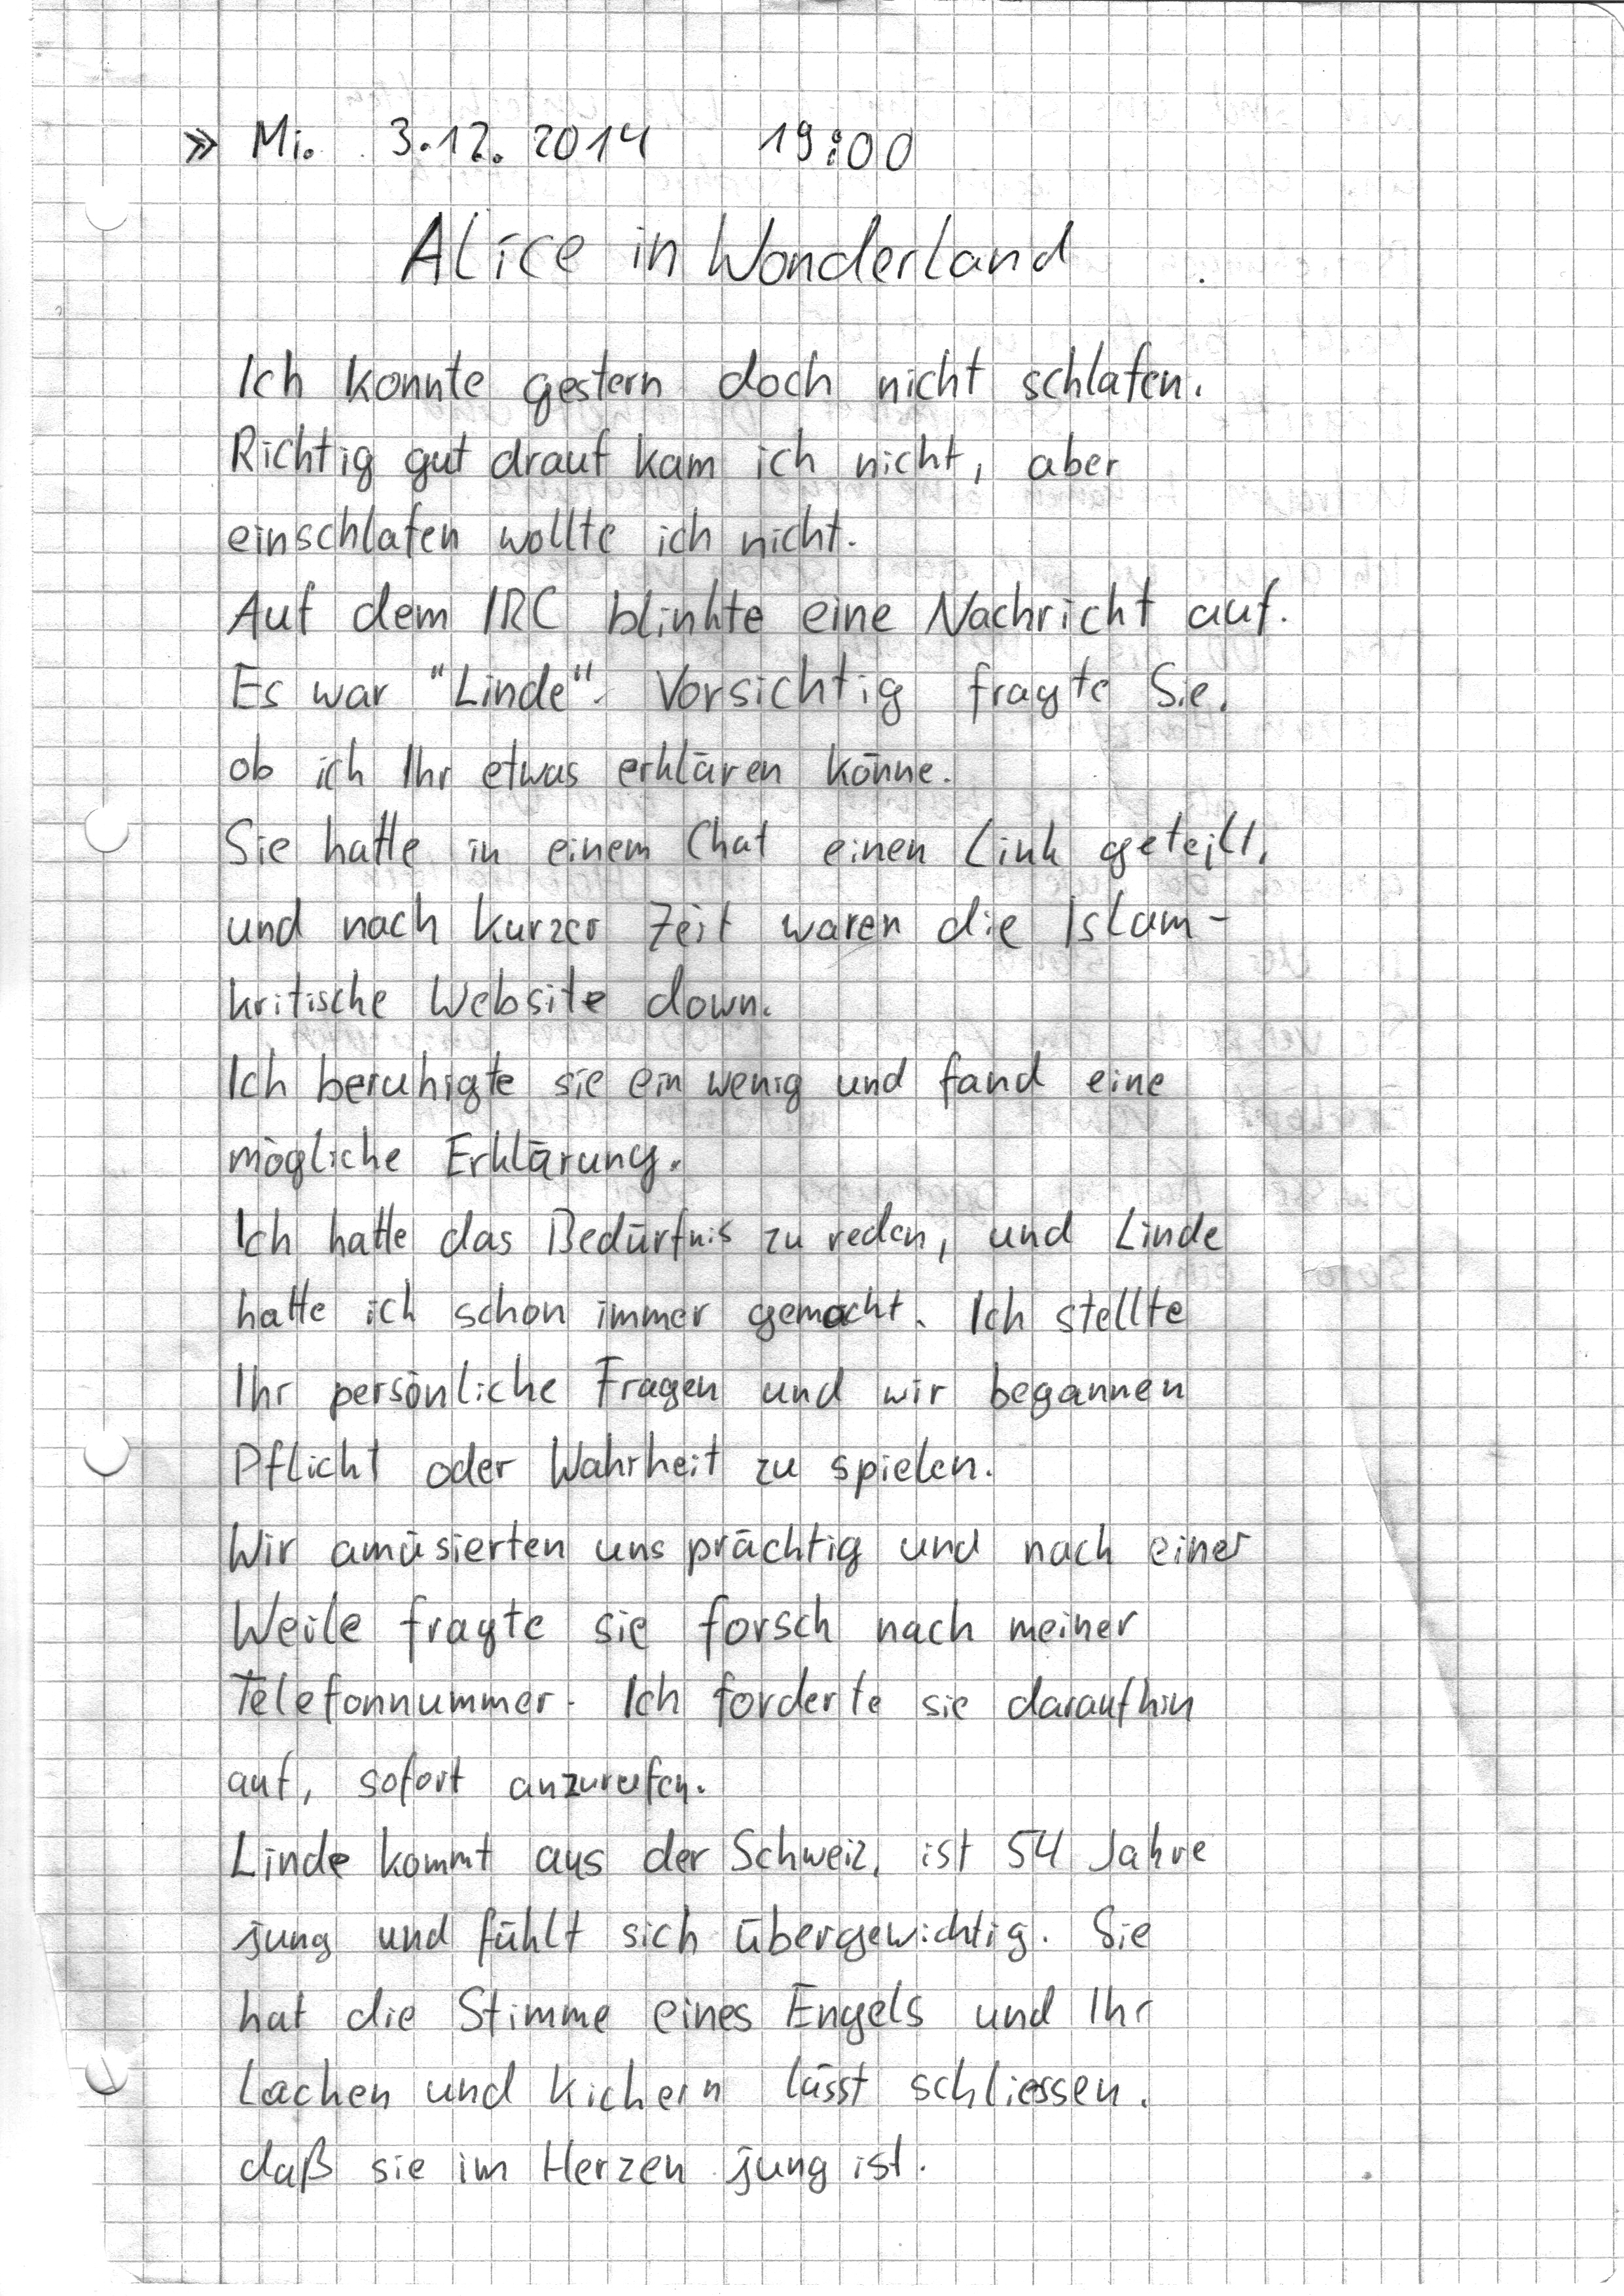 » Mi. 3.12. 2014 19:00
Alice in Wonderland
Ich konnte gestern doch nicht schlafen.
Richtig gut drauf kam ich nicht, aber
einschlafen wollte ich nicht.
Auf dem IRC blinkte eine Nachricht auf.
Es war "Linde". Vorsichtig fragte Sie,
ob ich Ihr etwas erklären könne.
Sie hatte in einem Chat einen Link geteilt,
und nach kurzer Zeit waren die Islam-
kritische Website down.
Ich beruhigte sie ein wenig und fand eine
mögliche Erklärung.
Ich hatte das Bedürfnis zu reden, und Linde
hatte ich schon immer gemocht. Ich stellte
Ihr persönliche Fragen und wir begannen
Pflicht oder Wahrheit zu spielen.
Wir amüsierten uns prächtig und nach einer
Weile fragte sie forsch nach meiner
Telefonnummer. Ich forderte sie daraufhin
auf, sofort anzurufen.
Linde kommt aus der Schweiz, ist 54 Jahre
jung und fühlt sich übergewichtig. Sie
hat die Stimme eines Engels und Ihr
Lachen und Kichern lässt schliessen,
daß sie im Herzen jung ist.